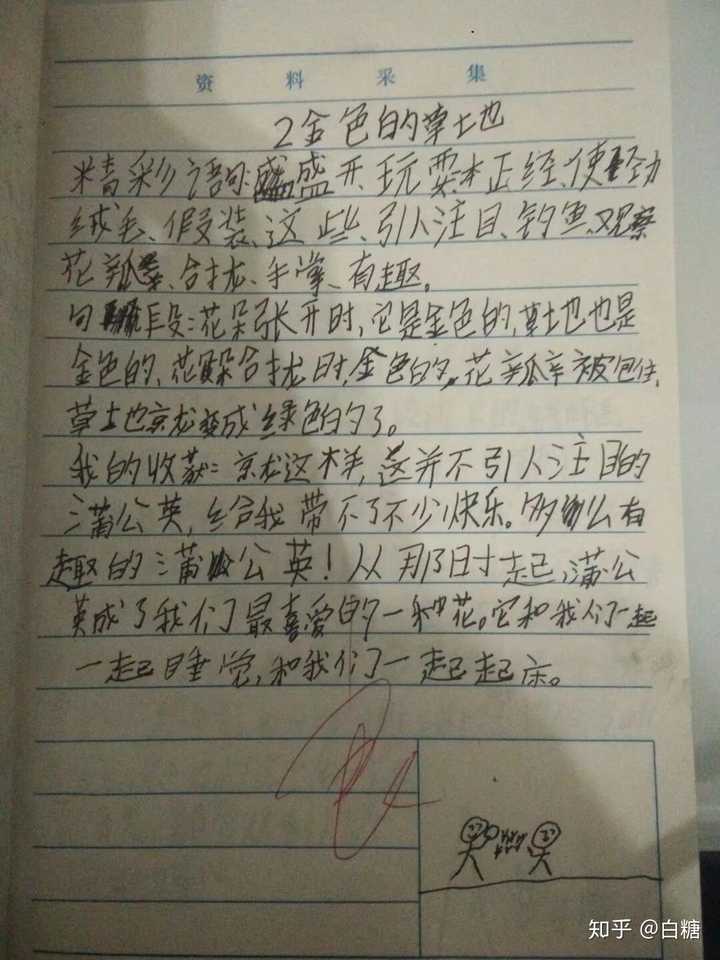 资料采集
2金色的草地
精彩语句:盛开、玩耍、本正经、使劲
绒毛、假装、这些、引人注目、钓鱼、观察
花瓣、合拢、手掌、有趣。
句段:花朵张开时,它是金色的,草地也是
金色的,花朵合拢时,金色的,花瓣被包住,
草地就变成绿色的了。
我的收获:就这样,这并不引人注目的
蒲公英,给我带不了不少快乐。多么有
趣的蒲公英!从那时起,蒲公
英成了我们最喜爱的一种花。它和我们一起
一起睡觉,和我们一起起床。
知乎 @白糖